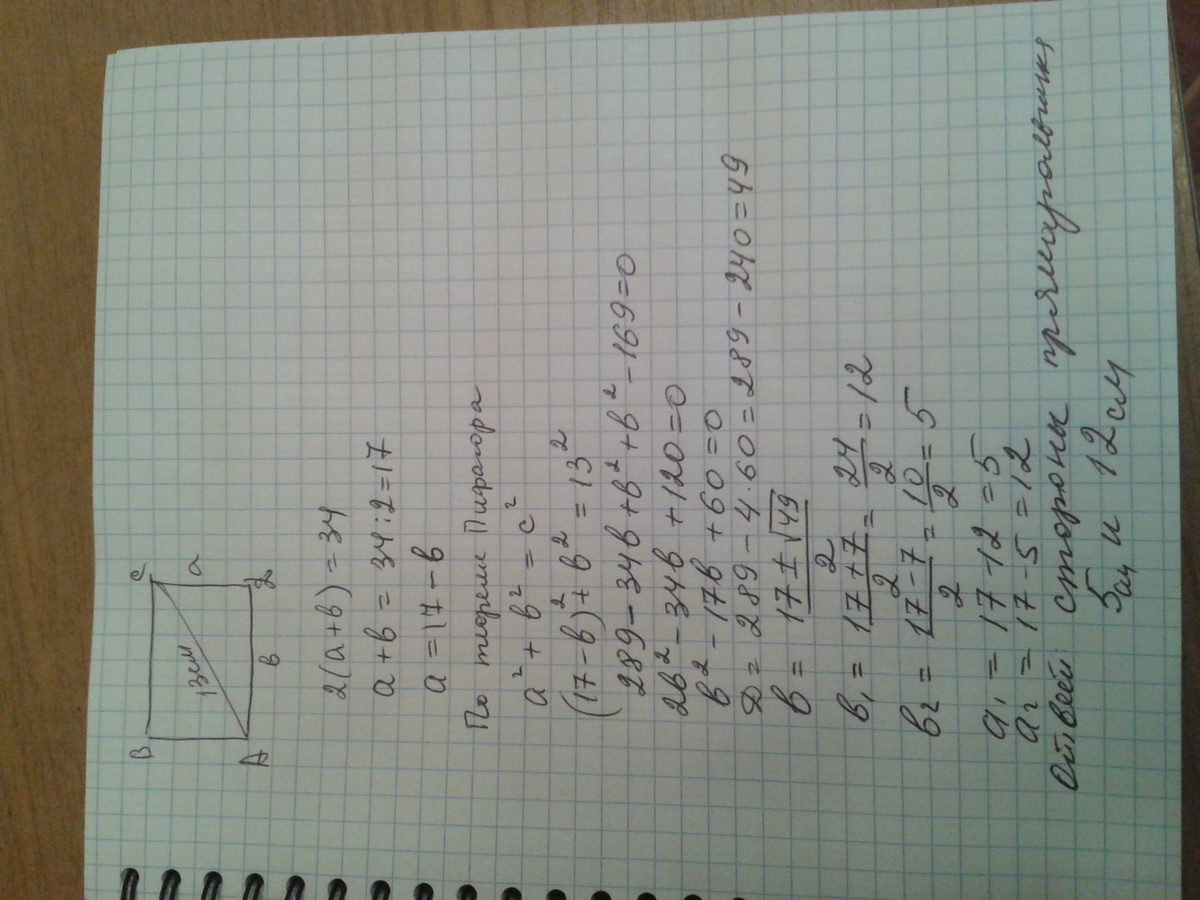 В С
13см a
А в Д
2(а+в)=34
а+в = 34:2=17
а=17-в
По теореме Пифагора
а²+в²=с²
(17-в)²+в²=13²
289-34в+в²+в²-169=0
2в²-34в+120=0
в²-17в+60=0
Д=289-4·60=289-240=49
в = (17±√49)/2
в₁ = (17+7)/2 = 24/2 = 12
в₂ = (17-7)/2 = 10/2 = 5
а₁ = 17-12=5
а₂ = 17-5=12
Ответ: стороны прямоугольника
5см и 12см